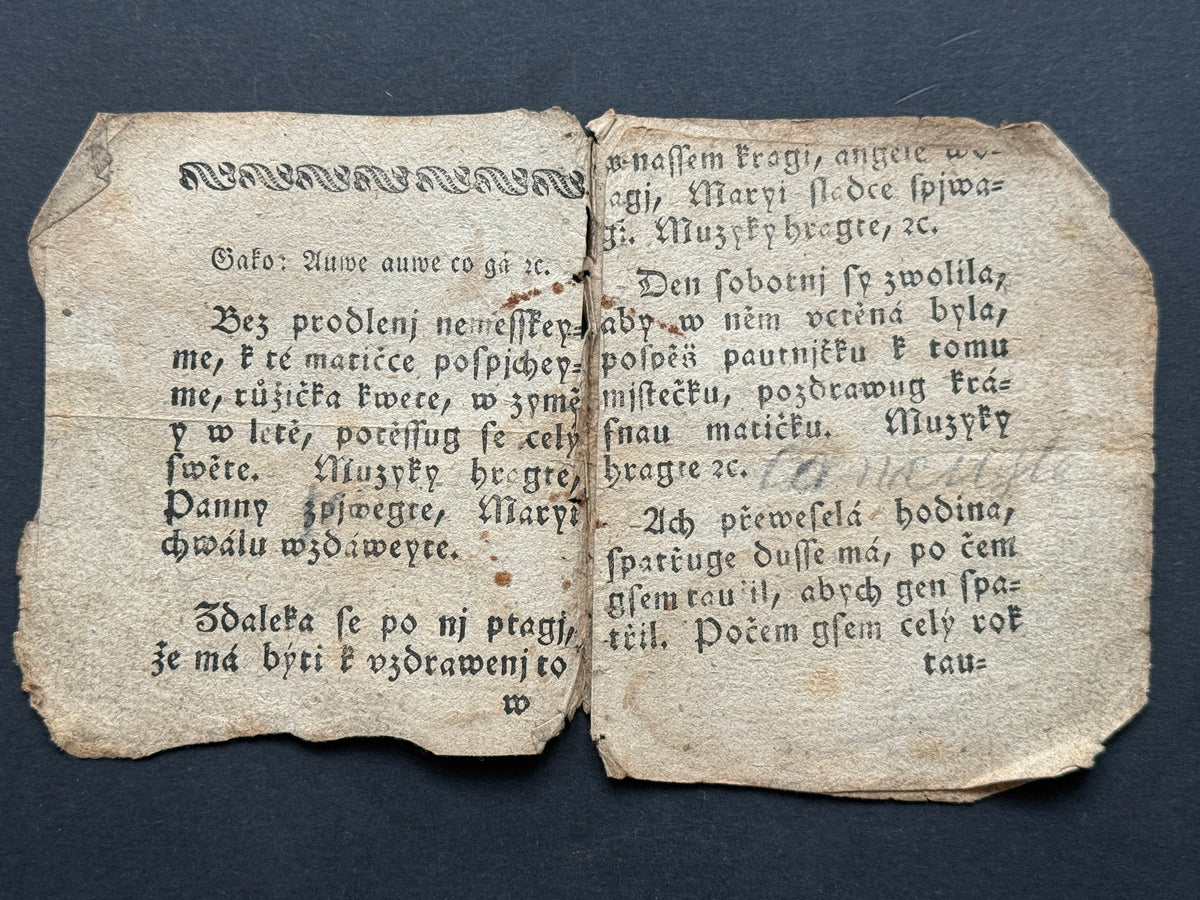 Gako: Auwe auwe co gá ꝛc.
Bez prodlenj nemesskey-
me, k té matičce pospjchey-
me, růžička kwete, w zymě
y w letě, potěssug se celý
swěte. Muzyky hragte,
Panny zpjwegte, Maryi
chwálu wzdáweyte.
Zdaleka se po nj ptagj,
že má býti k vzdrawenj to
w
w nassem kragi, angele wo-
lagj, Maryi sladce spjwa-
gi. Muzyky hragte, ꝛc.
Den sobotnj sy zwolila,
aby w něm vctěná byla,
pospěš pautnjčku k tomu
mjstečku, pozdrawug krá-
snau matičku. Muzyky
hragte ꝛc.
Ach přeweselá hodina,
spatřuge dusse má, po čem
gsem taužil, abych gen spa-
třil. Počem gsem celý rok
tau-